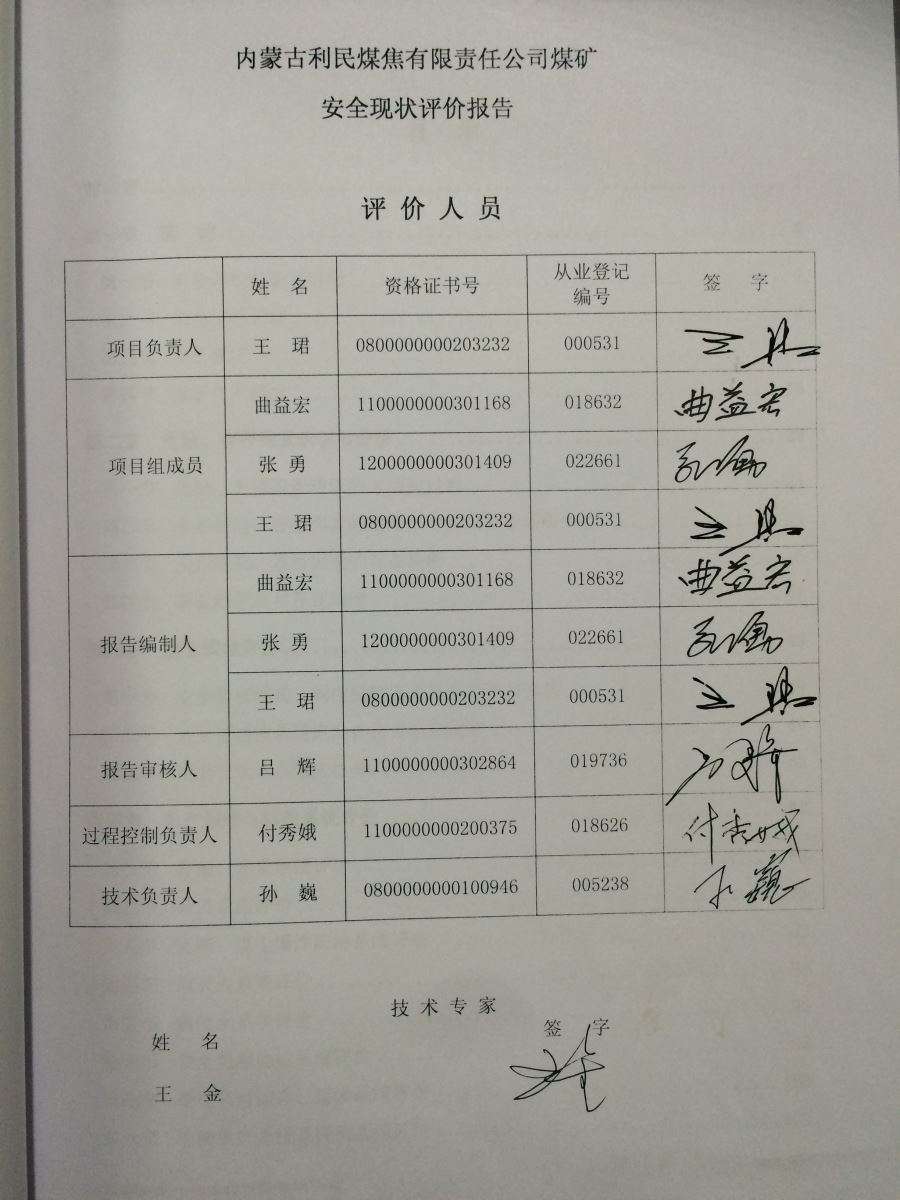 内蒙古利民煤焦有限责任公司煤矿
安全现状评价报告
评价人员
姓 名 资格证书号 从业登记编号 签 字
项目负责人 王 珺 0800000000203232 000531 王珺
项目组成员 曲益宏 1100000000301168 018632 曲益宏
张 勇 1200000000301409 022661 张勇
王 珺 0800000000203232 000531 王珺
报告编制人 曲益宏 1100000000301168 018632 曲益宏
张 勇 1200000000301409 022661 张勇
王 珺 0800000000203232 000531 王珺
报告审核人 吕 辉 1100000000302864 019736 吕辉
过程控制负责人 付秀娥 1100000000200375 018626 付秀娥
技术负责人 孙 巍 0800000000100946 005238 孙巍
技术专家
姓 名 签 字
王 金 王金